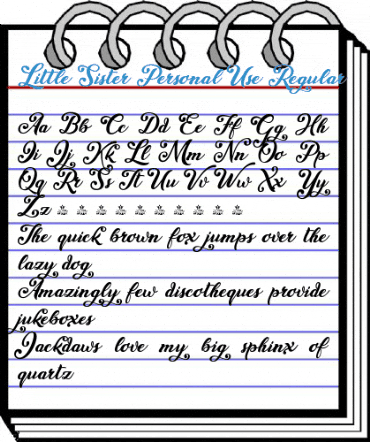 Little Sister Personal Use Regular
Aa Bb Cc Dd Ee Ff Gg Hh
Ii Jj Kk Ll Mm Nn Oo Pp
Qq Rr Ss Tt Uu Vv Ww Xx Yy
Zz
The quick brown fox jumps over the
lazy dog
Amazingly few discotheques provide
jukeboxes
Jackdaws love my big sphinx of
quartz